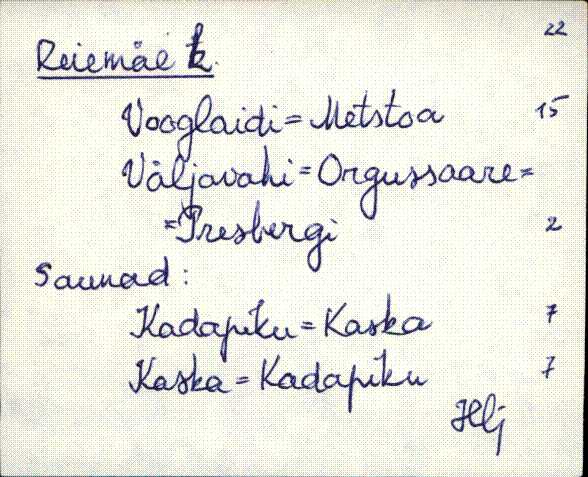 22
Reiemäe k.
Vooglaidi = Metstoa 15
Väljavahi = Orgussaare =
= Presbergi 2
Saunad :
Kadapiku = Kaska 7
Kaska = Kadapiku 7
Hlj